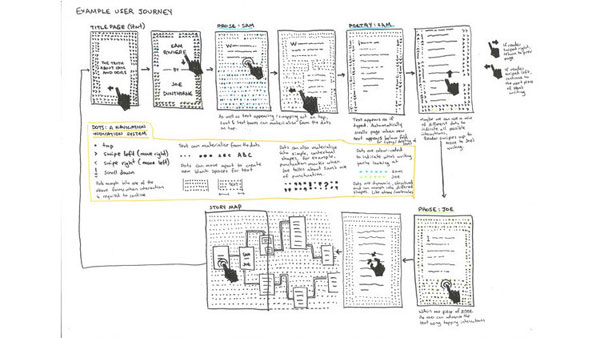 EXAMPLE USER JOURNEY
TITLE PAGE (Start)
THE TRUTH
ABOUT CATS
AND DOGS
SAM
RIVIERE
BY
JOE
DUNTHORNE
PROSE: SAM
W
As well as text appearing / swapping on tap,
text & text boxes can materialise from the dots
on tap.
W
POETRY: SAM
Text appears as if
typed. Automatically
scrolls page when new
text appears below fold
Maybe we can use a mix
of different dots to
indicate all possible
interactions.
Reader swipes left to
move to Joe's
writing.
If reader
swipes right,
return to
page
If reader
swipes left,
continue to
the next piece
of
writing
DOTS: A NAVIGATION
INDICATION SYSTEM
• tap
> swipe left (move right)
< swipe right (move left)
↓ Scroll down
Dots morph into one of the
above forms when interaction
is required to continue
Text can materialise from the dots
ABC ABC
Dots can move apart to create
new blank spaces for text
TEXT
Dots can also materialise
into simple, contextual
shapes, for example,
punctuation marks when
Joe talks about Sam's use
of punctuation.
Dots are colour-coded
to indicate which writing
you're looking at.
Sam
Joe
Dots are dynamic,
and can morph into different
shapes.
STORY MAP
SAM
JOE
PROSE: JOE
Within one piece of prose
the user can advance the
text using tapping interactions